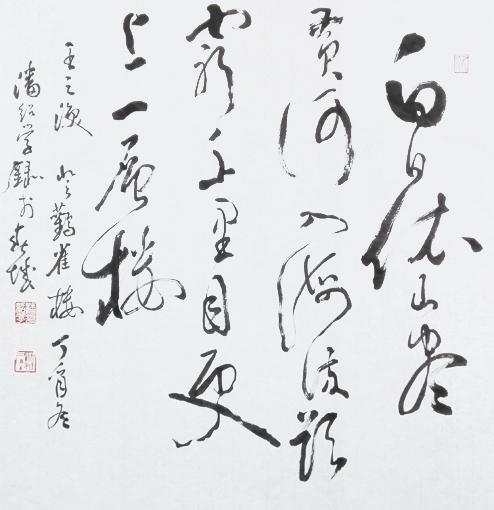 白日依山尽
黄河入海流欲
穷千里目更
上一层楼
王之涣 登鹳雀楼 丁酉冬
潘绍学录于春城